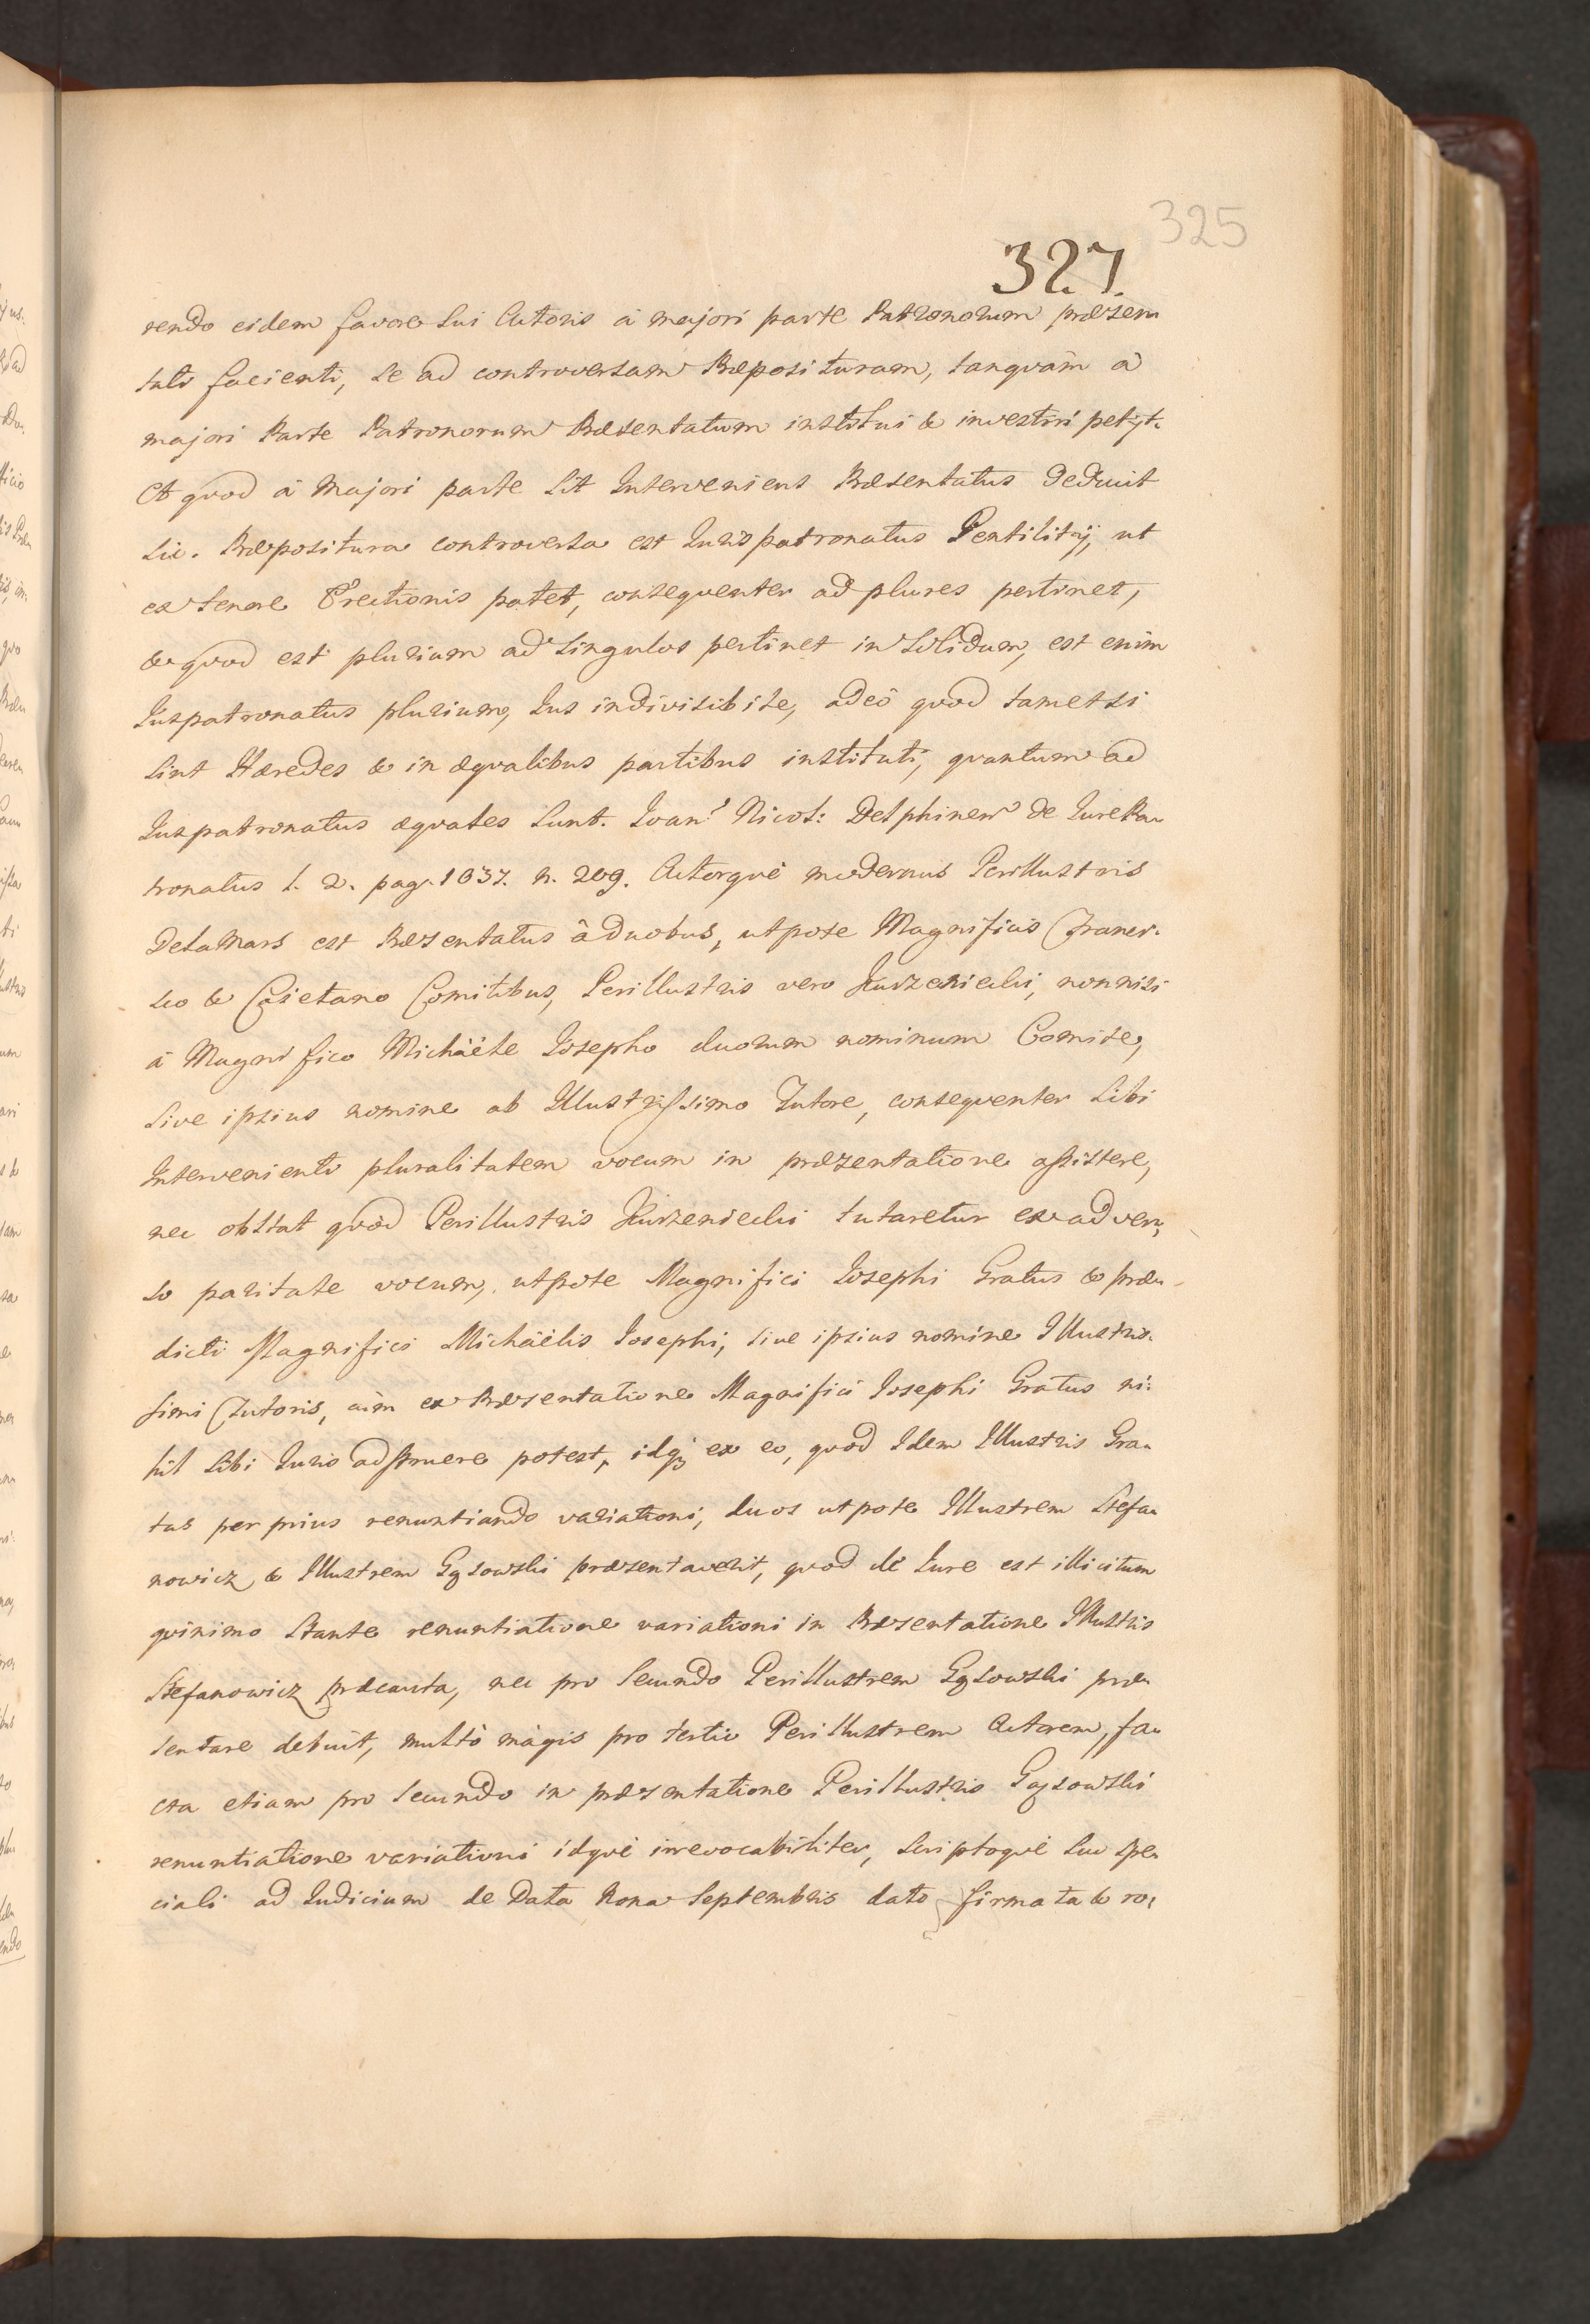 325
327.
rendo eidem favore sui Actoris à majori parte Patronorum præsen
tato facienti, se ad controversam Præposituram, tanquàm à
majori Parte Patronorum Præsentatum institui & investiri petijt.
Et quod à Majori parte sit Interveniens Præsentatus deducit
sic. Præpositura controversa est Jurispatronatus Gentilitij, ut
ex tenore Erectionis patet, consequenter ad plures pertinet,
& quod est plurium ad singulos pertinet in solidum, est enim
Juspatronatus plurium, Jus indivisibile, adeò quod tametsi
sint Hæredes & in æqualibus partibus instituti, quantum ad
Juspatronatus æquales sunt. Joan: Nicol: Delphinen de Jure Pa-
tronatus l. 2. pag. 1037. n. 209. Actorquè modernus Perillustris
DelaMars est Præsentatus à duobus, utpote Magnificis Francis-
sco & Caietano Comitibus, Perillustris vero Kurzeniecki, nonnisi
à Magnifico Michaële Josepho duorum nominum Comite,
sive ipsius nomine ab Illustrissimo Tutore, consequenter sibi
Intervenienti pluralitatem vocum in præsentatione assistere,
nec obstat quòd Perillustris Kurzeniecki tutaretur ex adver-
so paritate vocum, utpote Magnifici Josephi Gratus & præ-
dicti Magnifici Michaëlis Josephi, sive ipsius nomine Illustris-
simi Tutoris, cùm ex Præsentatione Magnifici Josephi Gratus ni-
hil sibi Juris adstruere potest, idq; ex eo, quod Idem Illustris Gra-
tus per prius renuntiando variationi, duos utpote Illustrem Stefa-
nowicz & Illustrem Gąsowski præsentaverit, quod de Jure est illicitum
quinimo stante renuntiatione variationi in Præsentatione Illustris
Stefanowicz præcauta, nec pro secundo Perillustrem Gąsowski præ-
sentare debuit, multò màgis pro tertio Perillustrem Actorem, fa-
cta etiam pro secundo in præsentatione Perillustris Gąsowski
renuntiatione variationi idquè irrevocabiliter, scriptoquè suo spe-
ciali ad Judicium de Data Nona Septembris dato firmata & ro-